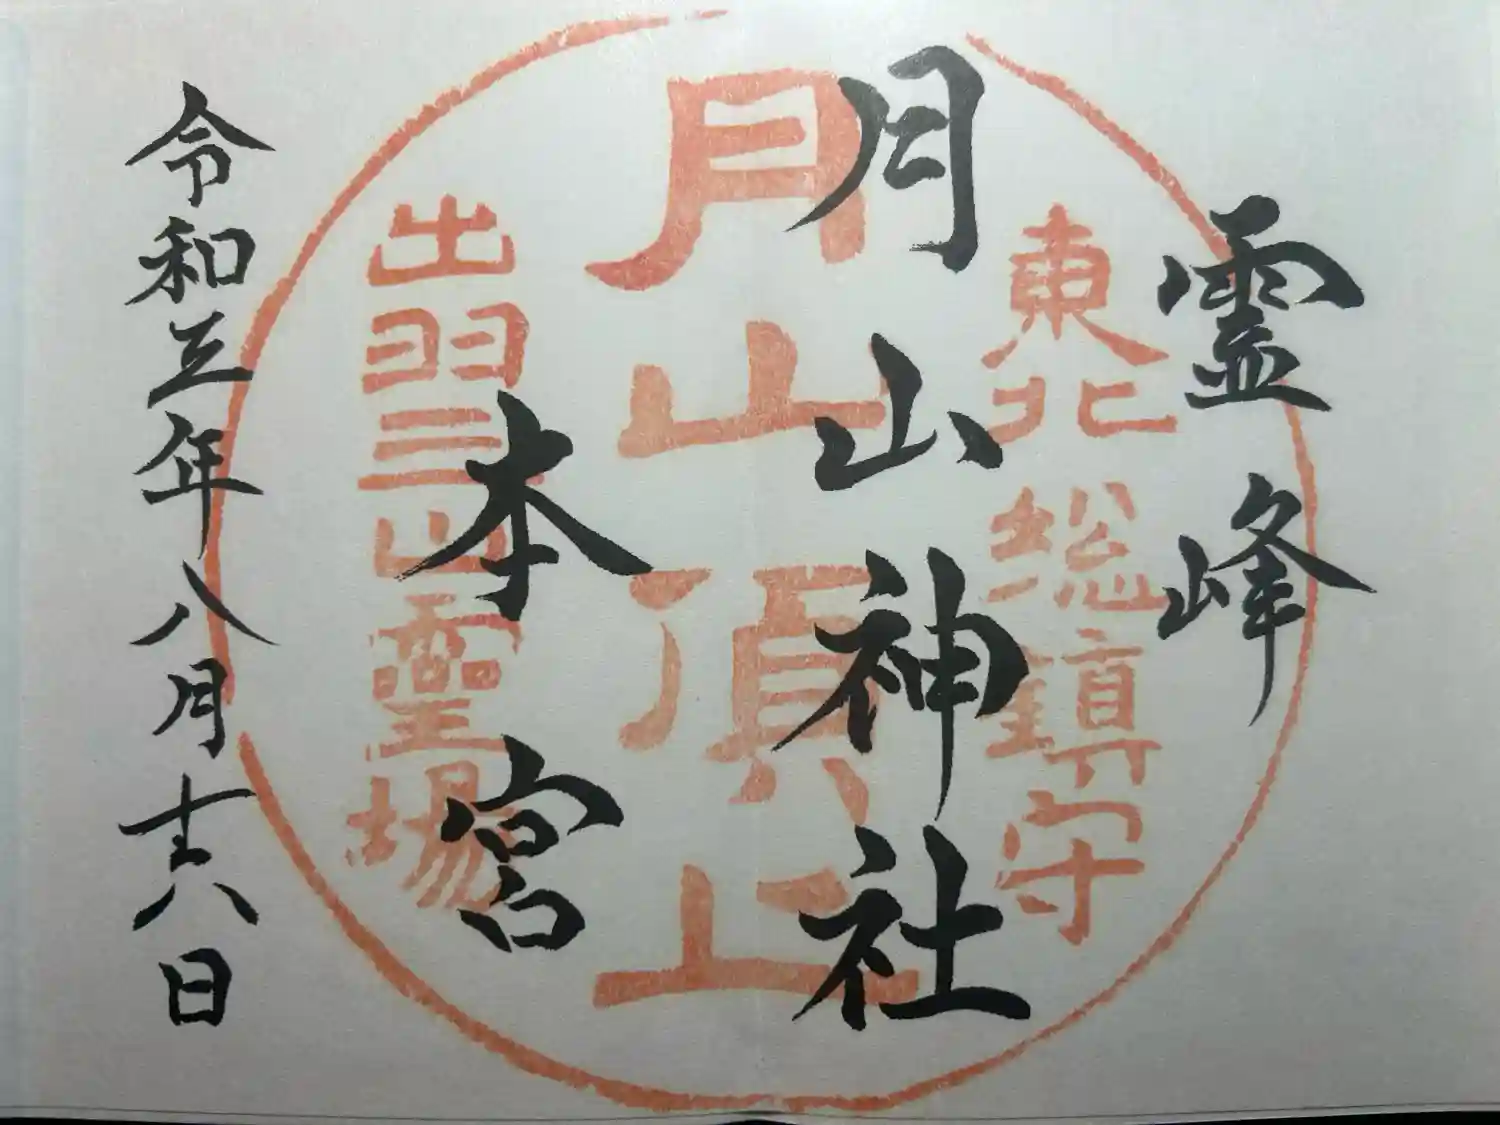 霊峰
東北総鎮守
月山神社
月山頂上
本宮
出羽三山靈場
令和五年八月十六日